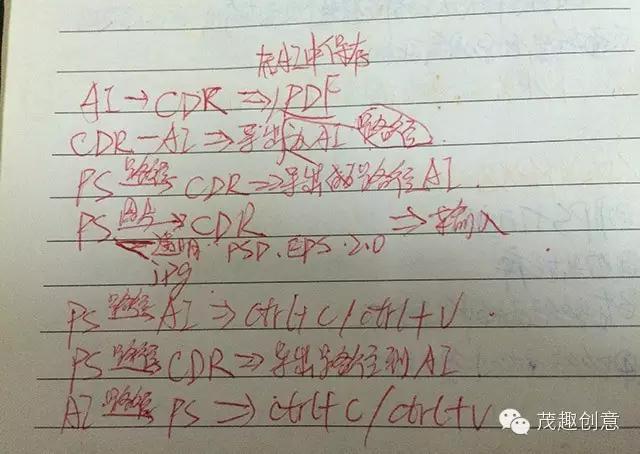 在AI中保存
AI → CDR ⇒ PDF
CDR — AI ⇒ 导出为AI 路径
PS 路径 CDR ⇒ 导出 路径 AI.
PS 图片 → CDR ⇒ 输入
透明. PSD. EPS. 2.0
jpg
PS 路径 AI ⇒ ctrl+C/ctrl+V.
PS 路径 CDR ⇒ 导出路径到AI
AI 路径 PS ⇒ ctrl+C/ctrl+V
茂趣创意